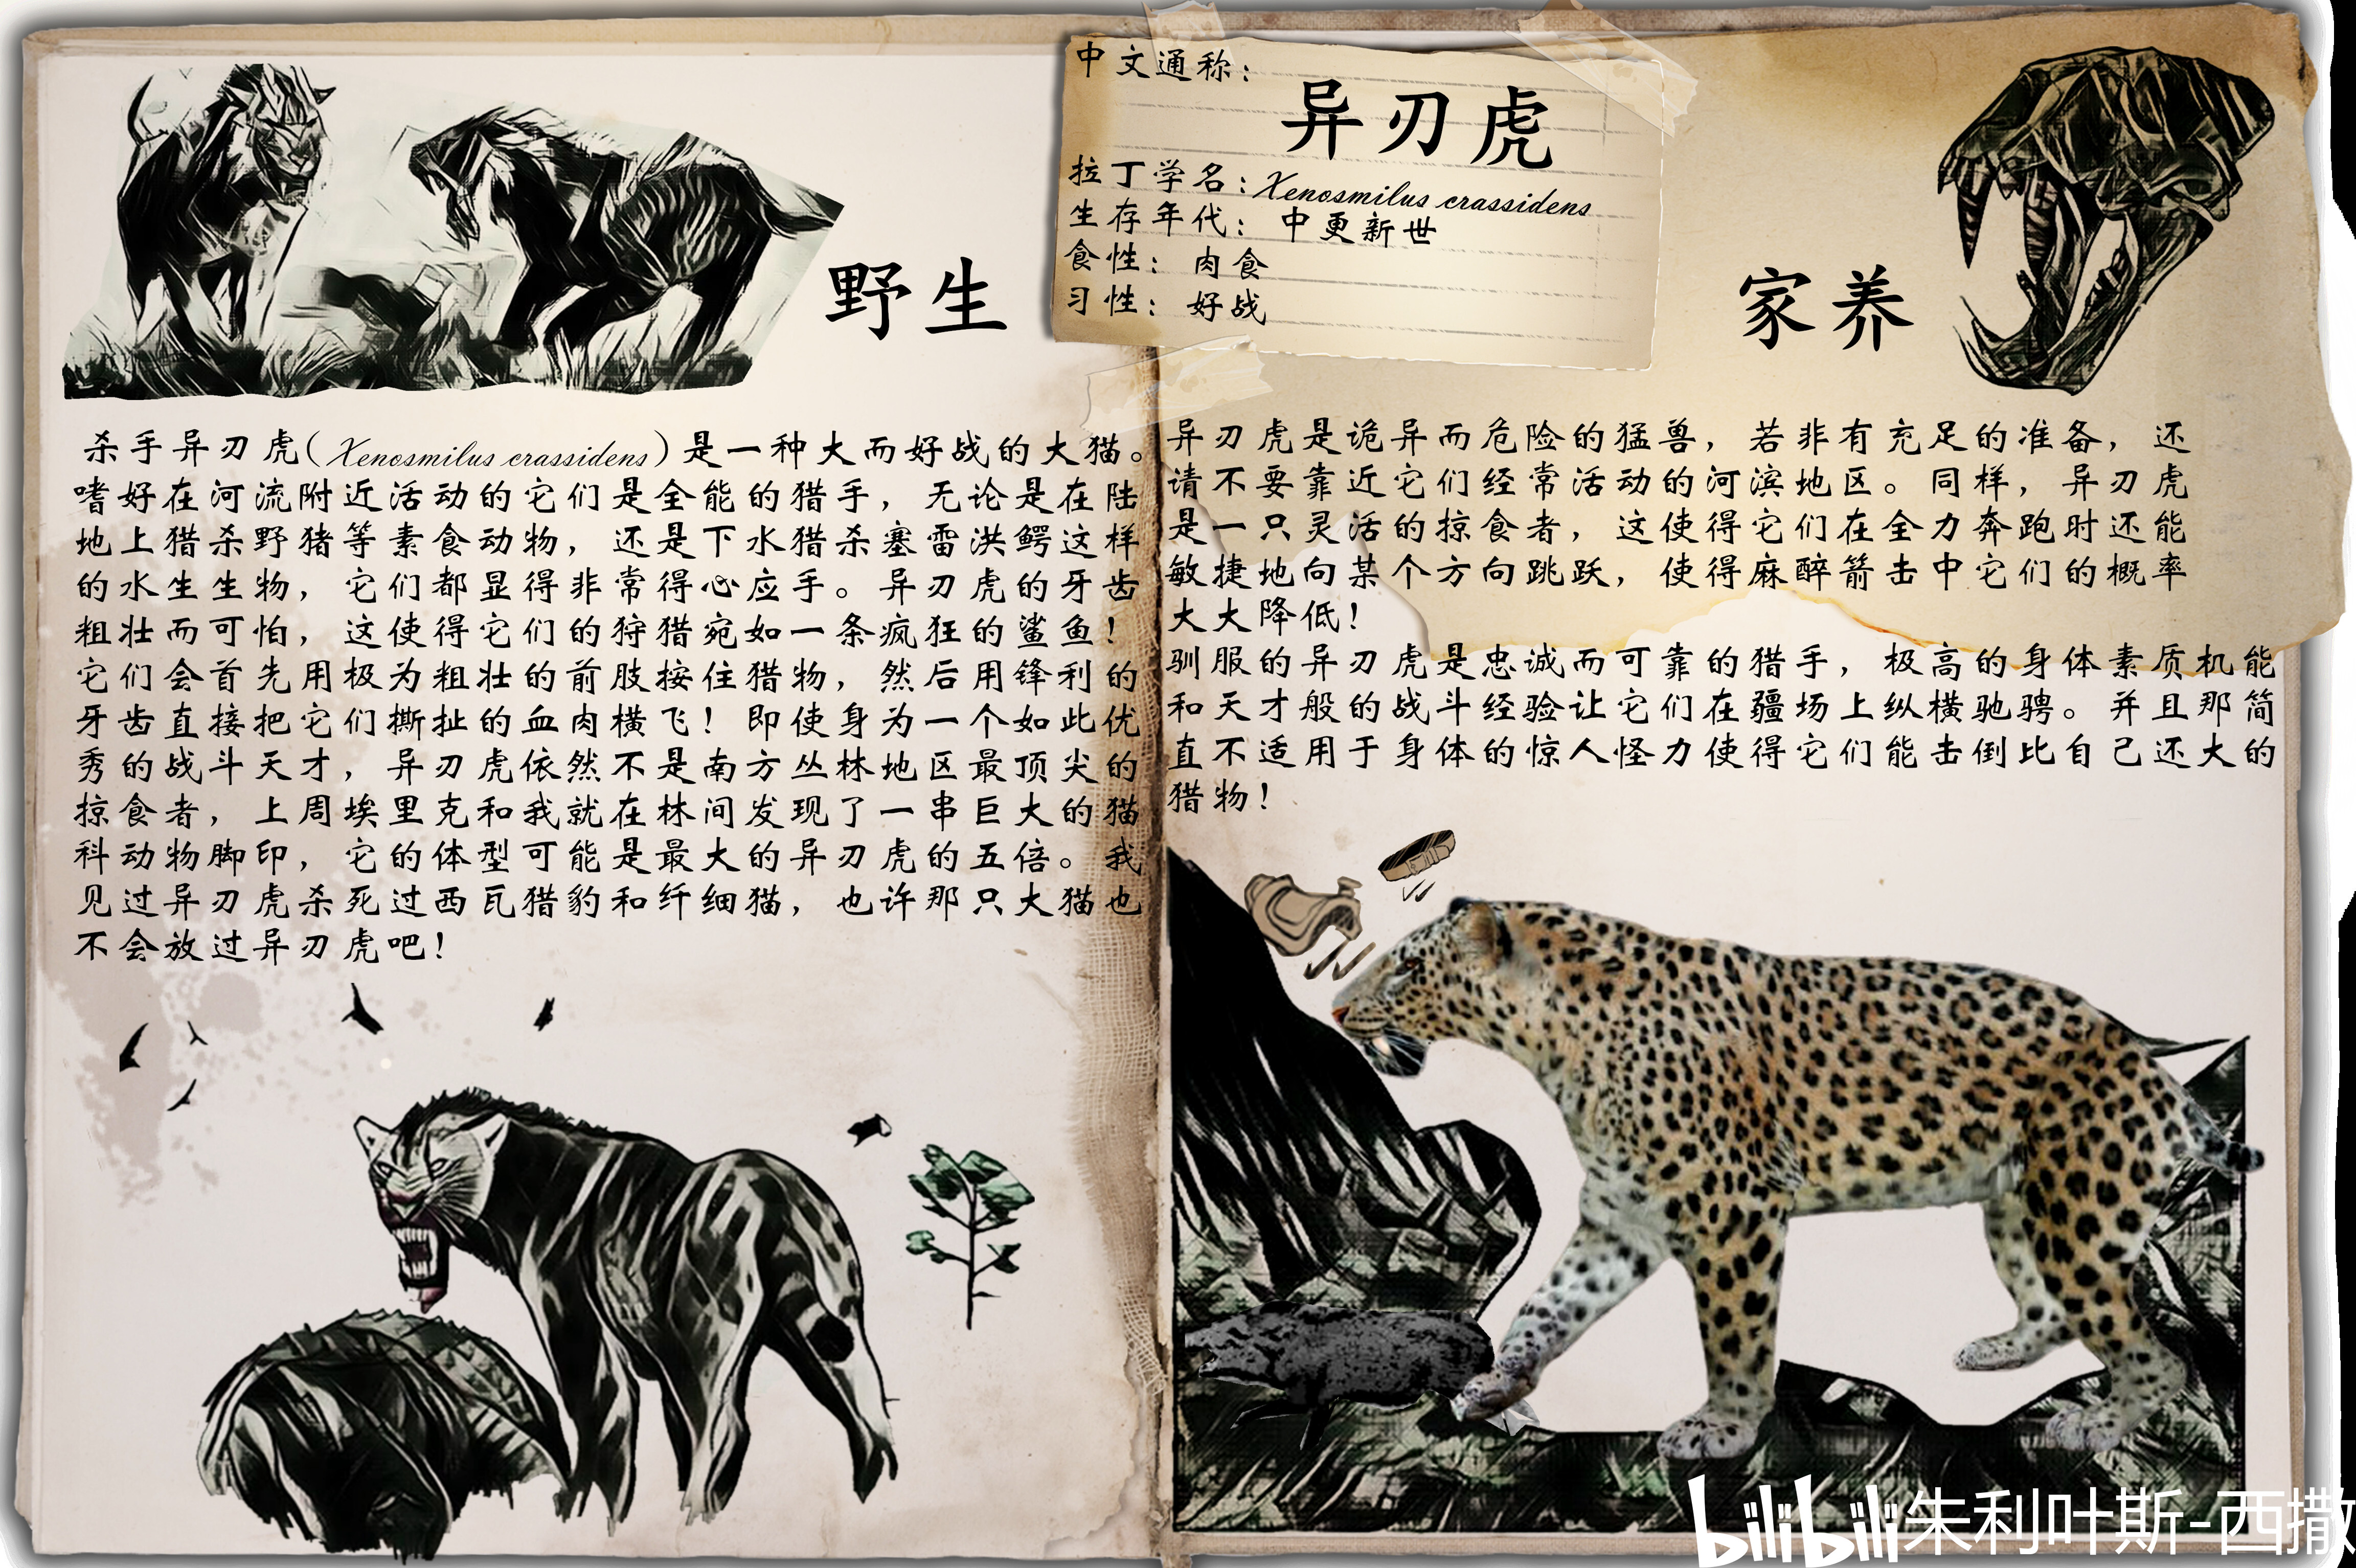 中文通称：
异刃虎
拉丁学名：Xenosmilus crassidens
生存年代：中更新世
食性：肉食
习性：好战
野生
杀手异刃虎(Xenosmilus crassidens)是一种大而好战的大猫。
嗜好在河流附近活动的它们是全能的猎手，无论是在陆
地上猎杀野猪等素食动物，还是下水猎杀塞雷洪鳄这样
的水生生物，它们都显得非常得心应手。异刃虎的牙齿
粗壮而可怕，这使得它们的狩猎宛如一条疯狂的鲨鱼！
它们会首先用极为粗壮的前肢按住猎物，然后用锋利的
牙齿直接把它们撕扯的血肉横飞！即使身为一个如此优
秀的战斗天才，异刃虎依然不是南方丛林地区最顶尖的
掠食者，上周埃里克和我就在林间发现了一串巨大的猫
科动物脚印，它的体型可能是最大的异刃虎的五倍。我
见过异刃虎杀死过西瓦猎豹和纤细猫，也许那只大猫也
不会放过异刃虎吧！
家养
异刃虎是诡异而危险的猛兽，若非有充足的准备，还
请不要靠近它们经常活动的河滨地区。同样，异刃虎
是一只灵活的掠食者，这使得它们在全力奔跑时还能
敏捷地向某个方向跳跃，使得麻醉箭击中它们的概率
大大降低！
驯服的异刃虎是忠诚而可靠的猎手，极高的身体素质机能
和天才般的战斗经验让它们在疆场上纵横驰骋。并且那简
直不适用于身体的惊人怪力使得它们能击倒比自己还大的
猎物！
bilibili 朱利叶斯-西撒